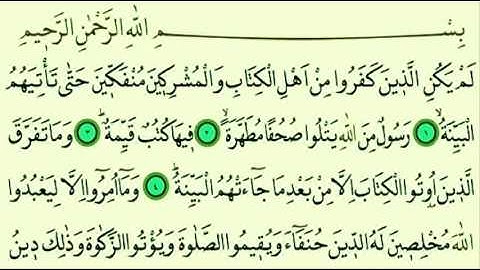 بِسْمِ اللّٰهِ الرَّحْمٰنِ الرَّحِيمِ
لَمْ يَكُنِ الَّذِينَ كَفَرُوا مِنْ اَهْلِ الْكِتَابِ وَالْمُشْرِكِينَ مُنْفَكِّينَ حَتّٰى تَأْتِيَهُمُ
الْبَيِّنَةُۙ ١ رَسُولٌ مِنَ اللّٰهِ يَتْلُوا صُحُفًا مُطَهَّرَةًۙ ٢ فِيهَا كُتُبٌ قَيِّمَةٌۜ ٣ وَمَا تَفَرَّقَ
الَّذِينَ اُوتُوا الْكِتَابَ اِلَّا مِنْ بَعْدِ مَا جَٓاءَتْهُمُ الْبَيِّنَةُۜ ٤ وَمَٓا اُمِرُٓوا اِلَّا لِيَعْبُدُوا
اللّٰهَ مُخْلِصِينَ لَهُ الدِّينَ حُنَفَٓاءَ وَيُقِيمُوا الصَّلٰوةَ وَيُؤْتُوا الزَّكٰوةَ وَذٰلِكَ دِينُ